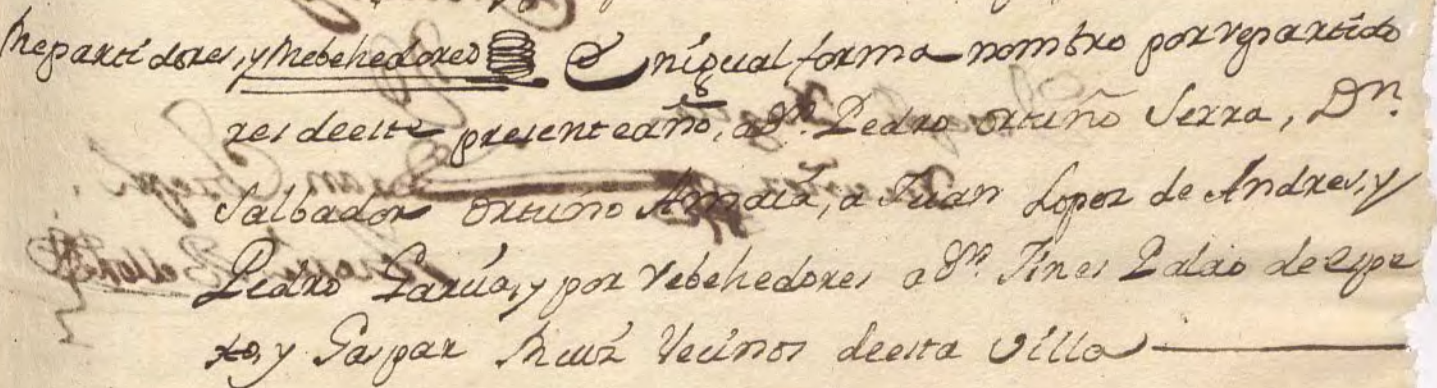 Repartidores, y Rebehedores En igual forma nombro por repartido
res deeste presente año, a Dn. Pedro ortuño Serra, Dn.
Salbador ortuño Amat, a Juan Lopez de Andres, y
Pedro Garcia, y por Vebehedores a Dn. Gines Palao de espe
xo, y Gaspar Ruiz Vecinos deesta Villa